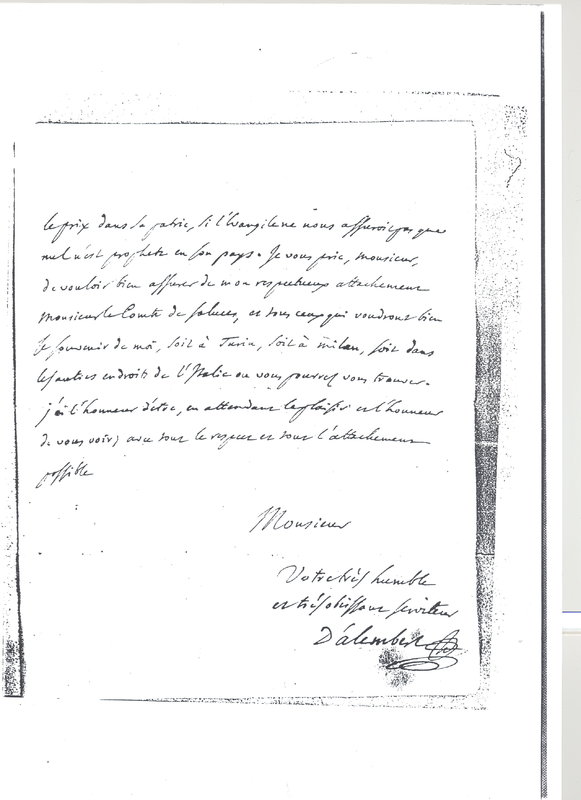 le prix dans sa patrie, si l'évangile ne nous assuroit pas que
nul n'est prophete en son pays. Je vous prie, monsieur,
de vouloir bien assurer de mon respectueux attachement
Monsieur le Comte de Saluces, et tous ceux qui voudront bien
se souvenir de moi, soit à Turin, soit à milan, soit dans
les autres endroits de l'Italie ou vous pourrez vous trouver.
j'ai l'honneur d'être, en attendant le plaisir et l'honneur
de vous voir, avec tout le respect et tout l'attachement
possible
Monsieur
Votre très humble
et très obéissant serviteur
D'alembert